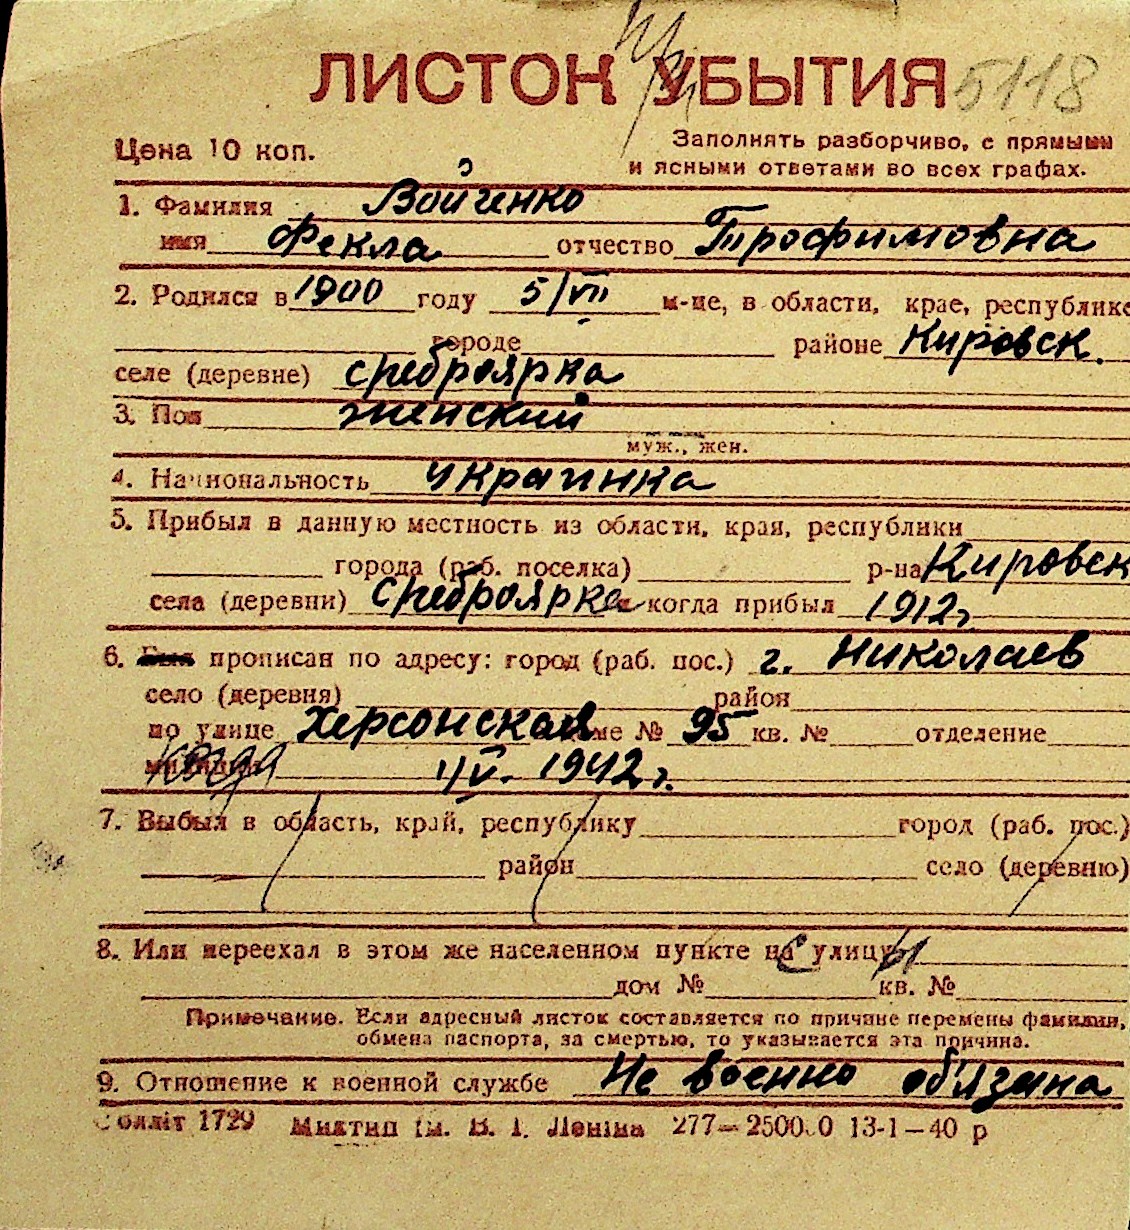 ЛИСТОК УБЫТИЯ 5118
Цена 10 коп.
Заполнять разборчиво, с прямыми
и ясными ответами во всех графах.
1. Фамилия Войченко
имя Фекла отчество Трофимовна
2. Родился в 1900 году 5/VII м-це, в области, крае, республике
городе районе Кировск.
селе (деревне) сребрoярка
3. Пол женский
муж., жен.
4. Национальность украинка
5. Прибыл в данную местность из области, края, республики
города (раб. поселка) р-на Кировск
села (деревни) сребрoярка и когда прибыл 1912г.
6. Был прописан по адресу: город (раб. пос.) г. Николаев
село (деревня) район
по улице Херсонская доме № 95 кв. № отделение
милиции Когда 1/IV. 1942г.
7. Выбыл в область, край, республику город (раб. пос.)
район село (деревню)
8. Или переехал в этом же населенном пункте на с улицу ы
дом № кв. №
Примечание. Если адресный листок составляется по причине перемены фамилии,
обмена паспорта, за смертью, то указывается эта причина.
9. Отношение к военной службе Не военно об'язана
Обллiт 1729 Миктип iм. В. I. Ленiна 277—25000 13-1—40 р